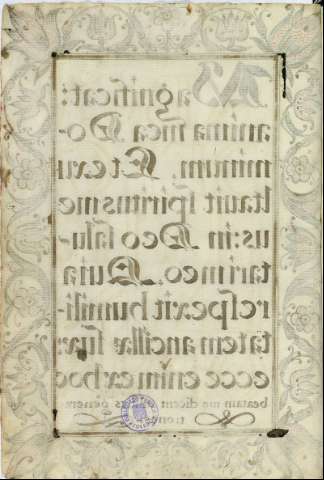 Magnificat:
anima mea Do-
minum. Et exu
ltauit ſpiritus me
us: in Deo ſalu-
tari meo. Quia
reſpexit humili-
tatem ancillæ ſuæ:
ecce enim ex hoc
beatam me dicent omnes genera
tiones